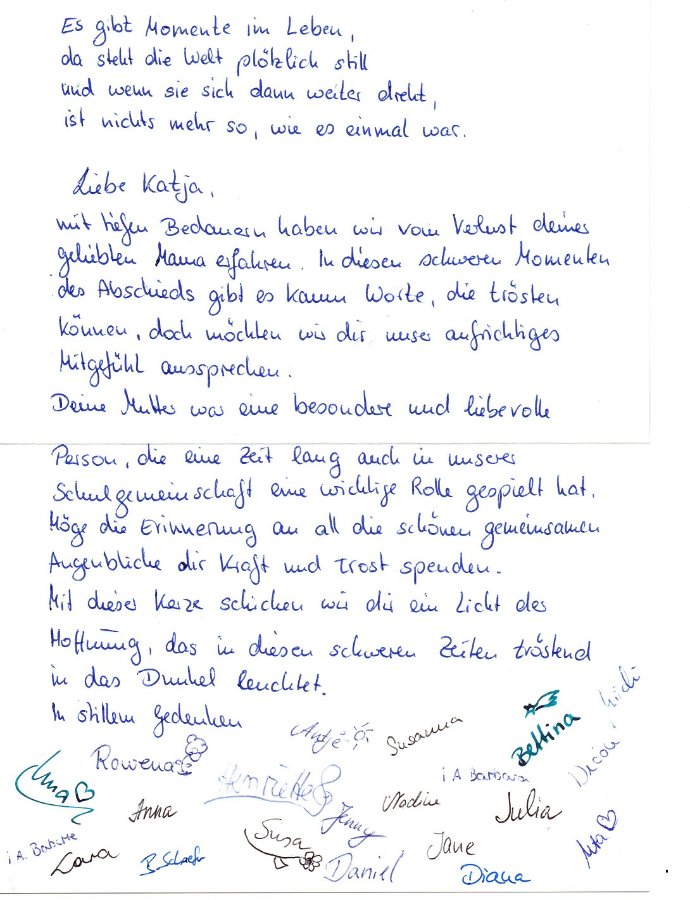 Es gibt Momente im Leben,
da steht die Welt plötzlich still
und wenn sie sich dann weiter dreht,
ist nichts mehr so, wie es einmal war.
Liebe Katja,
mit tiefen Bedauern haben wir vom Verlust deiner
geliebten Mama erfahren. In diesen schweren Momenten
des Abschieds gibt es kaum Worte, die trösten
können, doch möchten wir dir unser aufrichtiges
Mitgefühl aussprechen.
Deine Mutter war eine besondere und liebevolle
Person, die eine Zeit lang auch in unserer
Schulgemeinschaft eine wichtige Rolle gespielt hat.
Möge die Erinnerung an all die schönen gemeinsamen
Augenblicke dir Kraft und Trost spenden.
Mit dieser Kerze schicken wir dir ein Licht der
Hoffnung, das in diesen schweren Zeiten tröstend
in das Dunkel leuchtet.
In stillem Gedenken
Antje Susanna Bettina Nicole
Rowena Henriette i A Barbara
Anna Jenny Nadine Julia
i A. Babette Susa Jane
Lara Daniel Diana